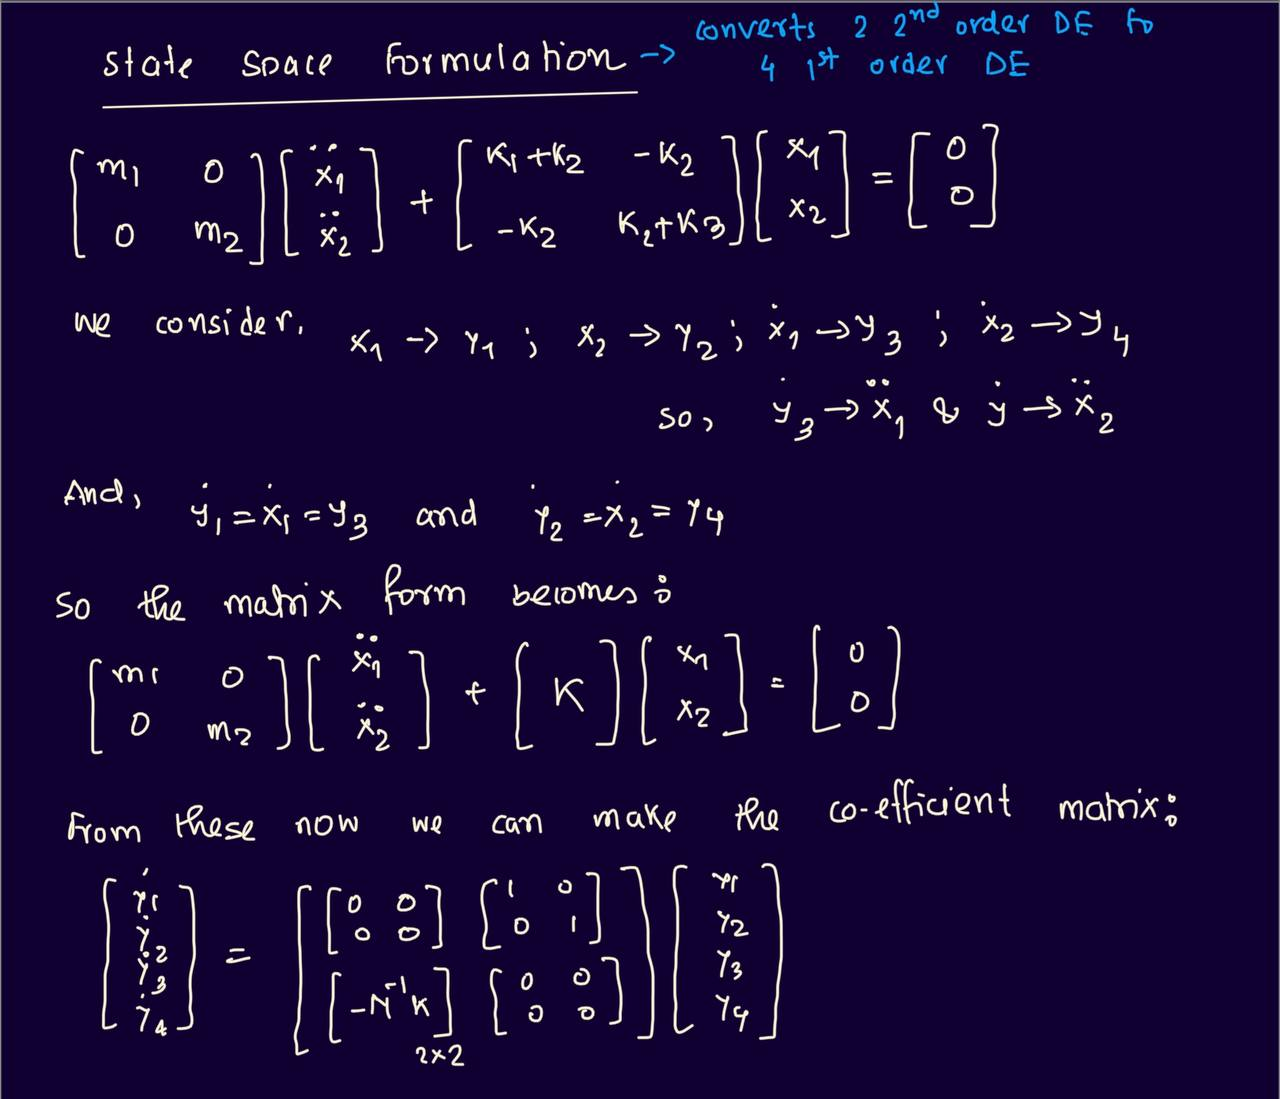 State Space Formulation → converts 2 2nd order DE to
4 1st order DE
[m1 0; 0 m2][ẍ1; ẍ2] + [K1+K2 -K2; -K2 K2+K3][x1; x2] = [0; 0]
we consider, x1 → Y1 ; x2 → Y2 ; ẋ1 → y3 ; ẋ2 → y4
so, ẏ3 → ẍ1 & ẏ → ẍ2
And, ẏ1 = ẋ1 = y3 and Ẏ2 = ẋ2 = Y4
So the matrix form becomes :
[m1 0; 0 m2][ẍ1; ẍ2] + [K][x1; x2] = [0; 0]
From these now we can make the co-efficient matrix:
[Ẏ1; Ẏ2; Ẏ3; Ẏ4] = [[0 0; 0 0] [1 0; 0 1]; [-M⁻¹K]2×2 [0 0; 0 0]][Y1; Y2; Y3; Y4]